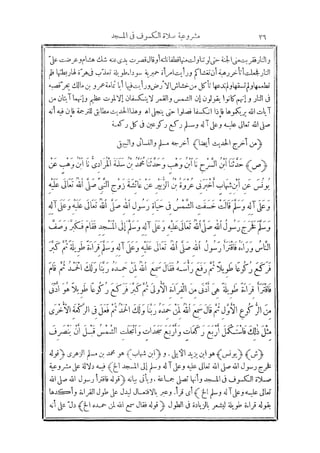 ٢٦ مشروعية صلاة الكسوف فى المسجد
والنار فقربت منى الجنة حتى لو تناولت منها قطفا نالته أو قال قصرت يدى عنه شك هشام وعرضت على
النار فجعلت أتأخر رهبة أن تغشاكم ورأيت امرأة حميرية سوداء طويلة تعذب فى هرة لها ربطتها فلم
تطعمها ولم تسقها ولم تدعها تأكل من خشاش الأرض ورأيت فيها أبا ثمامة عمرو بن مالك يجر قصبه
فى النار وإنهم كانوا يقولون إن الشمس والقمر لا ينكسفان إلا لموت عظيم وإنهما آيتان من
آيات الله يريكموها فإذا انكسفا فصلوا حتى ينجلى اه وهذا الحديث مطابق للترجمة فإن فيه أنه
صلى الله تعالى عليه وعلى آله وسلم ركع ركوعين فى كل ركعة
﴿من أخرج الحديث أيضا﴾ أخرجه مسلم والنسائى والبيهقى
﴿ص﴾ حَدَّثَنَا ابْنُ السَّرْحِ نَا ابْنُ وَهْبٍ وَحَدَّثَنَا مُحَمَّدُ بْنُ سَلَمَةَ الْمُرَادِىُّ نَا ابْنُ وَهْبٍ عَنْ
يُونُسَ عَنِ ابْنِ شِهَابٍ أَخْبَرَنِى عُرْوَةُ بْنُ الزُّبَيْرِ عَنْ عَائِشَةَ زَوْجِ النَّبِىِّ صَلَّى اللهُ تَعَالَى عَلَيْهِ
وَعَلَى آلِهِ وَسَلَّمَ قَالَتْ خَسَفَتِ الشَّمْسُ فِى حَيَاةِ رَسُولِ اللهِ صَلَّى اللهُ تَعَالَى عَلَيْهِ وَعَلَى آلِهِ
وَسَلَّمَ فَخَرَجَ رَسُولُ اللهِ صَلَّى اللهُ تَعَالَى عَلَيْهِ وَعَلَى آلِهِ وَسَلَّمَ إِلَى الْمَسْجِدِ فَقَامَ فَكَبَّرَ وَصَفَّ
النَّاسُ وَرَاءَهُ فَاقْتَرَأَ رَسُولُ اللهِ صَلَّى اللهُ تَعَالَى عَلَيْهِ وَعَلَى آلِهِ وَسَلَّمَ قِرَاءَةً طَوِيلَةً ثُمَّ كَبَّرَ
فَرَكَعَ رُكُوعًا طَوِيلًا ثُمَّ رَفَعَ رَأْسَهُ فَقَالَ سَمِعَ اللهُ لِمَنْ حَمِدَهُ رَبَّنَا وَلَكَ الْحَمْدُ ثُمَّ قَامَ
فَاقْتَرَأَ قِرَاءَةً طَوِيلَةً هِىَ أَدْنَى مِنَ الْقِرَاءَةِ الْأُولَى ثُمَّ كَبَّرَ فَرَكَعَ رُكُوعًا طَوِيلًا هُوَ أَدْنَى
مِنَ الرُّكُوعِ الْأَوَّلِ ثُمَّ قَالَ سَمِعَ اللهُ لِمَنْ حَمِدَهُ رَبَّنَا وَلَكَ الْحَمْدُ ثُمَّ فَعَلَ فِى الرَّكْعَةِ الْأُخْرَى
مِثْلَ ذَلِكَ فَاسْتَكْمَلَ أَرْبَعَ رَكَعَاتٍ وَأَرْبَعَ سَجَدَاتٍ وَانْجَلَتِ الشَّمْسُ قَبْلَ أَنْ يَنْصَرِفَ
﴿ش﴾ ﴿يونس﴾ هو ابن يزيد الأيلى. و ﴿ابن شهاب﴾ هو محمد بن مسلم الزهرى ﴿قوله
فخرج رسول الله صلى الله تعالى عليه وعلى آله وسلم إلى المسجد الخ﴾ فيه دلالة على مشروعية
صلاة الكسوف فى المسجد وأنها تصلى جماعة. ويأتى بيانه ﴿قوله فاقترأ رسول الله صلى الله
تعالى عليه وعلى آله وسلم الخ﴾ أى قرأ. وعبر بالافتعال ليدل على طول القراءة وأكدها
بقوله قراءة طويلة ليشعر بالزيادة فى الطول ﴿قوله فقال سمع الله لمن حمده الخ﴾ دل على أنه